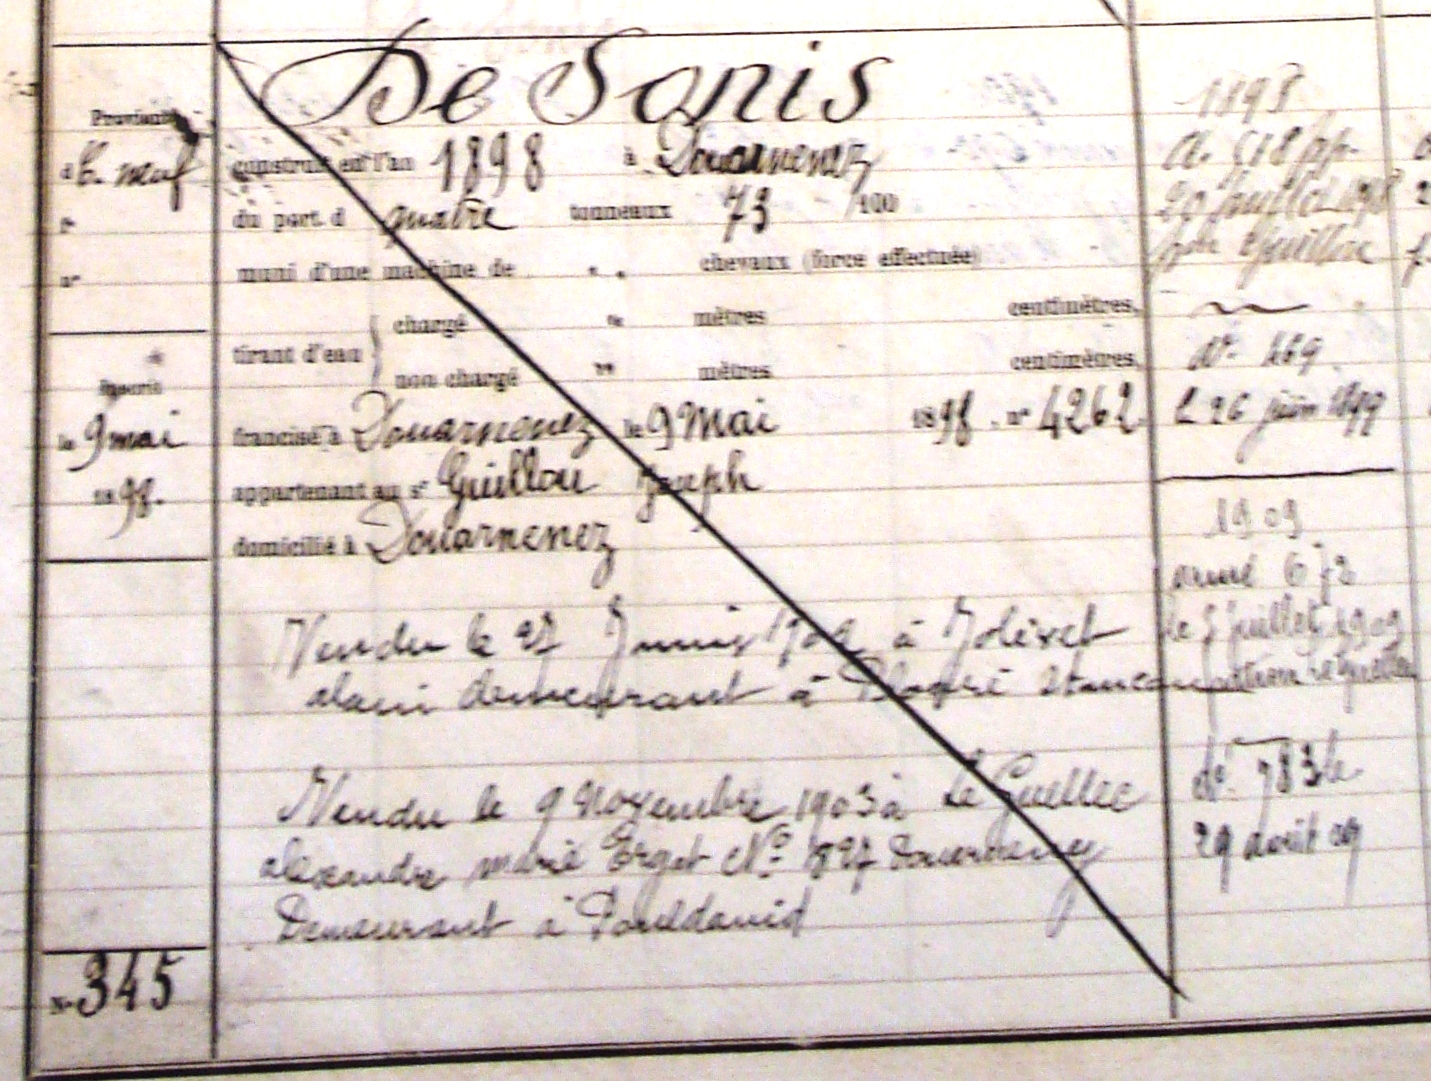 De Sonis
Provient
d b. neuf
construit en l'an 1898 à Douarnenez
du port d quatre tonneaux 73 /100
muni d'une machine de " " chevaux (force effectuée)
chargé " mètres centimètres,
tirant d'eau
non chargé " mètres centimètres,
Inscrit
le 9 mai
1898.
francisé à Douarnenez le 9 Mai 1898. n° 4262
appartenant au sr Guillou Joseph
domicilié à Douarnenez
Vendu le 27 à
demeurant à
Vendu le 9 Novembre 1903 à Le Guellec
alexandre marié N° 1827 Douarnenez
Demeurant à Pouldavid
N° 345
1898
A. 518
20 juillet 1898
Guillou
dt. 469
L 26 juin 1899
1909
armé 672
le 5 Juillet 1909
patron Le Guellec
dt. 783 le
29 août 09